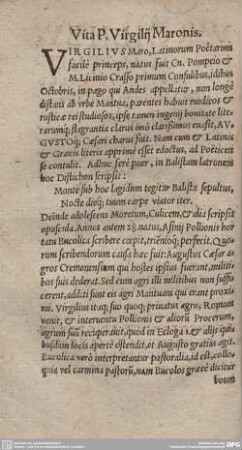 Vita P. Virgilij Maronis.
VIRGILIVS Maro, Latinorum Poëtarum
facilè princeps, natus fuit Cn. Pompeio &
M. Licinio Crasso primum Consulibus, idibus
Octobris, in pago qui Andes appellatur, non longè
distans ab vrbe Mantua, parentes habuit modicos &
rusticæ rei studiosos, ipse tamen ingenij bonitate lite-
rarumq; flagrantia clarus imò clarißimus euasit, AV-
GVSTOq; Cæsari charus fuit. Nam cum & Latinis
& Græcis literis apprimè esset edoctus, ad Poëticen
se contulit. Adhuc ferè puer, in Balistam latronem
hoc Distichon scripsit:
Monte sub hoc lapidum tegitur Balista sepultus,
Nocte dieq; tuum carpe viator iter.
Deinde adolescens Moretum, Culicem, & alia scripsit
opuscula. Annos autem 28. natus, Asinij Pollionis hor-
tatu Bucolica scribere cœpit, triennioq; perfecit. Quo-
rum scribendorum causa hæc fuit: Augustus Cæsar a-
gros Cremonensium qui hostes ipsius fuerant, militi-
bus suis dederat. Sed cum agri illi militibus non suffi-
cerent, addit sunt eis agri Mantuani qui erant proxi-
mi. Virgilius itaq; suo quoq; priuatus agro, Romam
venit, & interuentu Pollionis & aliorū Procerum,
agrum suū recuperauit, quod in Ecloga 1. & alijs qui-
busdam locis apertè ostendit, et Augusto gratias agit.
Bucolica verò interpretantur pastoralia, id est, collo-
quia vel carmina pastorū, nam Bucolos græcè dicitur
boum